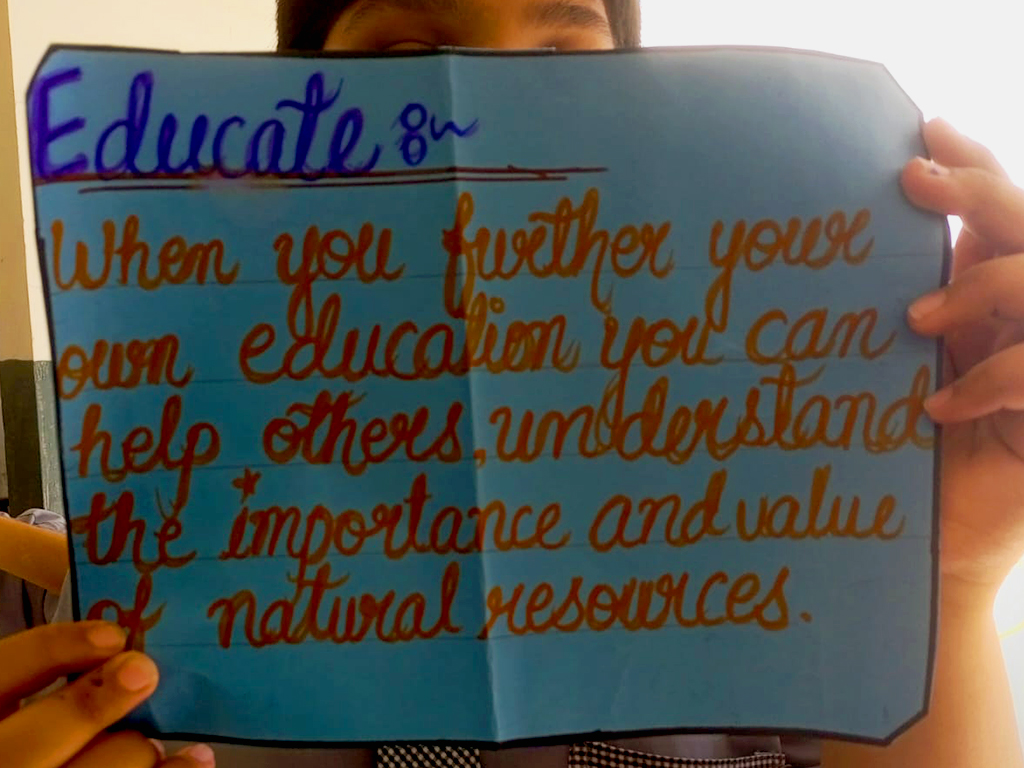 Educate :~
When you further your
own education you can
help others, understand
the importance and value
of natural resources.